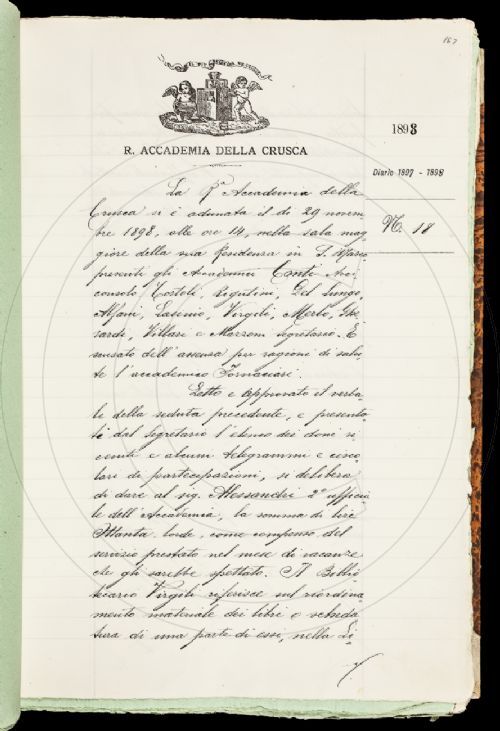 167
1898
R. ACCADEMIA DELLA CRUSCA
Diario 1897 - 1898
N. 18
La Rª Accademia della
Crusca si è adunata il dì 29 novem
bre 1898, alle ore 14, nella sala mag
giore della sua Residenza in S. Marco
presenti gli Accademici Conti Arci
consolo, Tortoli, Rigutini, Del Lungo,
Alfani, Lasinio, Virgili, Merlo, Ghe
rardi, Villari e Mazzoni Segretario. È
scusato dell'assenza per ragioni di salu
te l'accademico Fornaciari.
Letto e approvato il verba
le della seduta precedente, e presenta
to dal segretario l'elenco dei doni ri
cevuti e alcuni telegrammi e circo
lari di partecipazioni, si delibera
di dare al sig. Alessandri 2º officia
le dell'Accademia, la somma di lire
lorde, come compenso del
servizio prestato nel mese di vacanze
che gli sarebbe spettato. Il Biblio
tecario Virgili riferisce sul riordina
mento materiale dei libri e scheda
tura di una parte di essi, nella Li